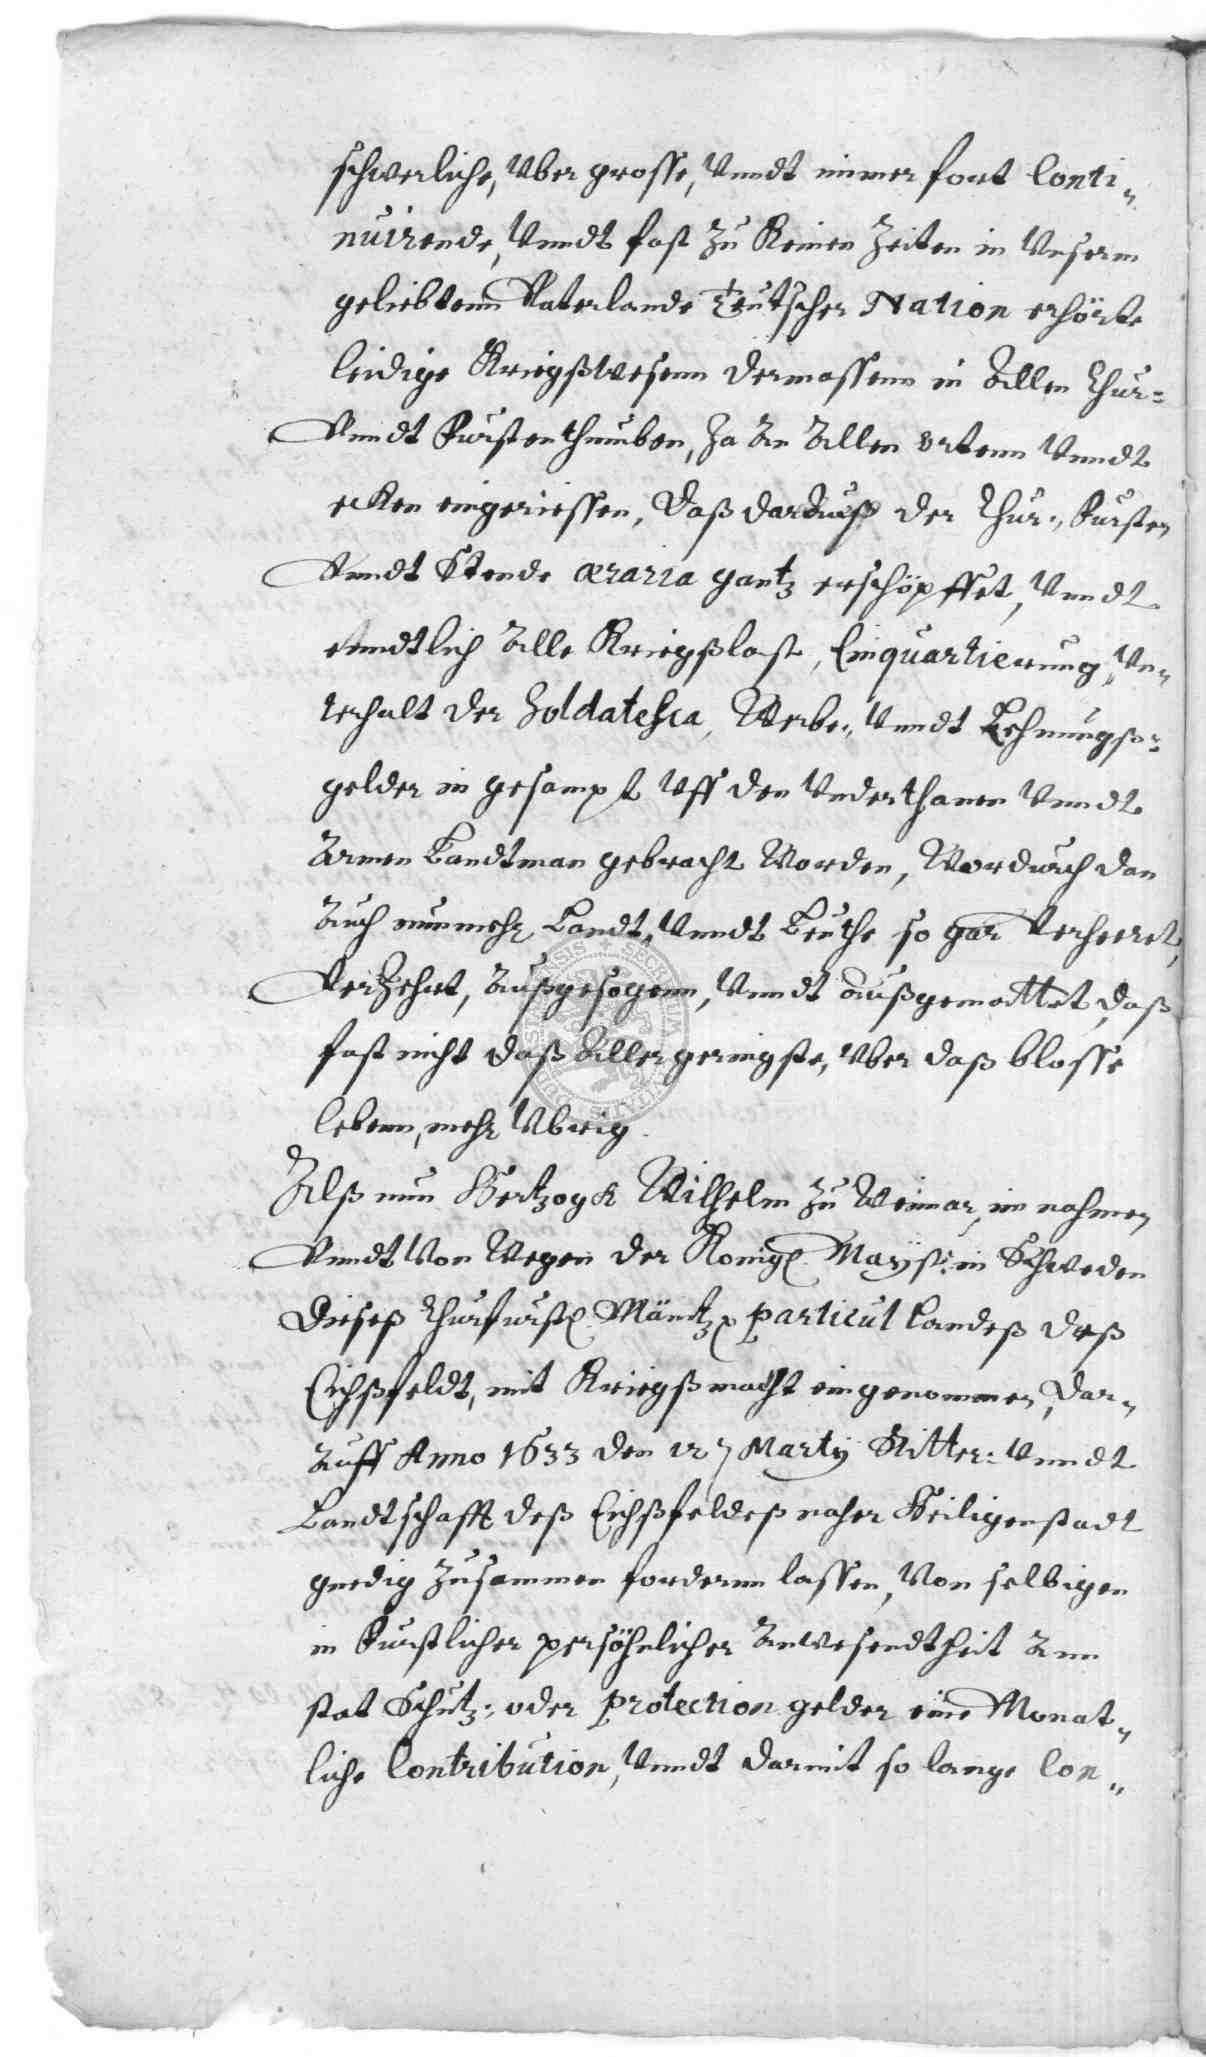 schwerliche, Vber grosse, Vnndt immer fort Conti„
nuirende, Vnndt fast zu Keinen Zeiten in Vnserm
geliebtenn Vaterlande Teutscher Nation erhörte
leidige Kriegßwesenn dermassenn in Allen Chur=
Vnndt Furstenthumben, Ja An Allen ortenn Vnndt
ecken eingerissen, Daß dardurch der Chur:, Fursten
Vnndt Stende æraria gantz erschöpffet, Vnndt
enndtlich Alle Kriegßlast, Einquartierung, Vn„
terhalt der Soldatesca, Werbe:, Vnndt Lehnungß=
gelder in gesampt Vff den Vnderthanen Vnndt
Armen Landtman gebracht Worden, Wordurch dan
Auch nunmehr Landt, Vnndt Leuthe so gar Verheeret,
Verzehrt, Außgesogenn, Vnndt außgemattet, daß
fast nicht daß Allergeringste, Vber daß blosse
lebenn, mehr Vbrig.
Alß nun Hertzogk Wilhelm zu Weimar, im nahmen
Vnndt Von Wegen der Königl. Mayst: in Schweden
Dieseß Churfurstl. Mäintz. particul Landeß deß
Eichßfeldt, mit Kriegßmacht eingenommen, Dar„
Auff Anno 1633 den 127 Martij Ritter: Vnndt
Landtschafft deß Eichßfeldeß naher Heiligenstadt
gnedig Zusammen fordernn lassen, Von selbigen
in Furstlicher persöhnlicher Anwesendtheit Ann
stat Schutz:, oder protection gelder eine Monat„
liche Contribution, Vnndt darmit so lange Con„
SECRETARIV